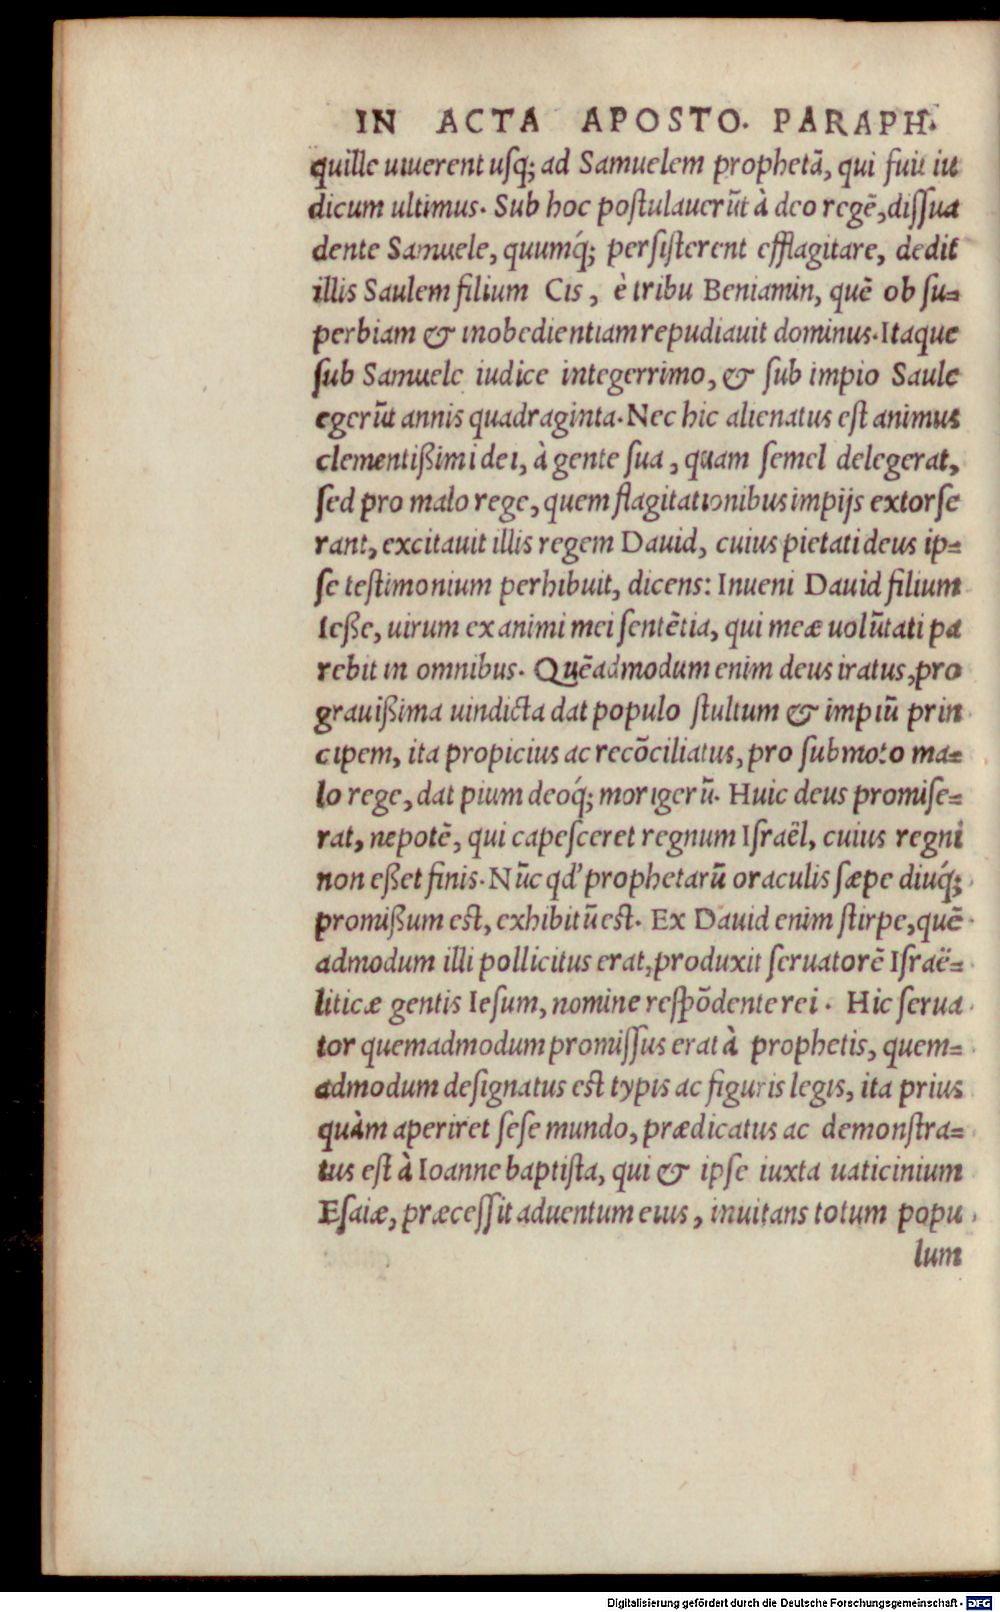 IN ACTA APOSTO. PARAPH.
quille uiuerent usq; ad Samuelem prophetā, qui fuit iu
dicum ultimus. Sub hoc poſtulauerūt à deo regē, diſſua
dente Samuele, quumq́; perſiſterent efflagitare, dedit
illis Saulem filium Cis, è tribu Beniamin, quē ob ſu=
perbiam & inobedientiam repudiauit dominus. Itaque
ſub Samuele iudice integerrimo, & ſub impio Saule
egerūt annis quadraginta. Nec hic alienatus eſt animus
clementißimi dei, à gente ſua, quam ſemel delegerat,
ſed pro malo rege, quem flagitationibus impijs extorſe
rant, excitauit illis regem Dauid, cuius pietati deus ip=
ſe teſtimonium perhibuit, dicens: Inueni Dauid filium
Ieße, uirum ex animi mei ſentētia, qui meæ uolūtati pa
rebit in omnibus. Quēadmodum enim deus iratus, pro
grauißima uindicta dat populo ſtultum & impiū prin
cipem, ita propicius ac recōciliatus, pro ſubmoto ma=
lo rege, dat pium deoq́; morigerū. Huic deus promiſe=
rat, nepotē, qui capeſceret regnum Iſraël, cuius regni
non eßet finis. Nūc qd' prophetarū oraculis ſæpe diuq́;
promißum eſt, exhibitū eſt. Ex Dauid enim ſtirpe, quē
admodum illi pollicitus erat, produxit ſeruatorē Iſraë=
liticæ gentis Ieſum, nomine reſpōdente rei. Hic ſerua
tor quemadmodum promiſſus erat à prophetis, quem=
admodum deſignatus eſt typis ac figuris legis, ita prius
quàm aperiret ſeſe mundo, prædicatus ac demonſtra=
tus eſt à Ioanne baptiſta, qui & ipſe iuxta uaticinium
Eſaiæ, præceſſit aduentum eius, inuitans totum popu
lum
Digitalisierung gefördert durch die Deutsche Forschungsgemeinschaft - DFG